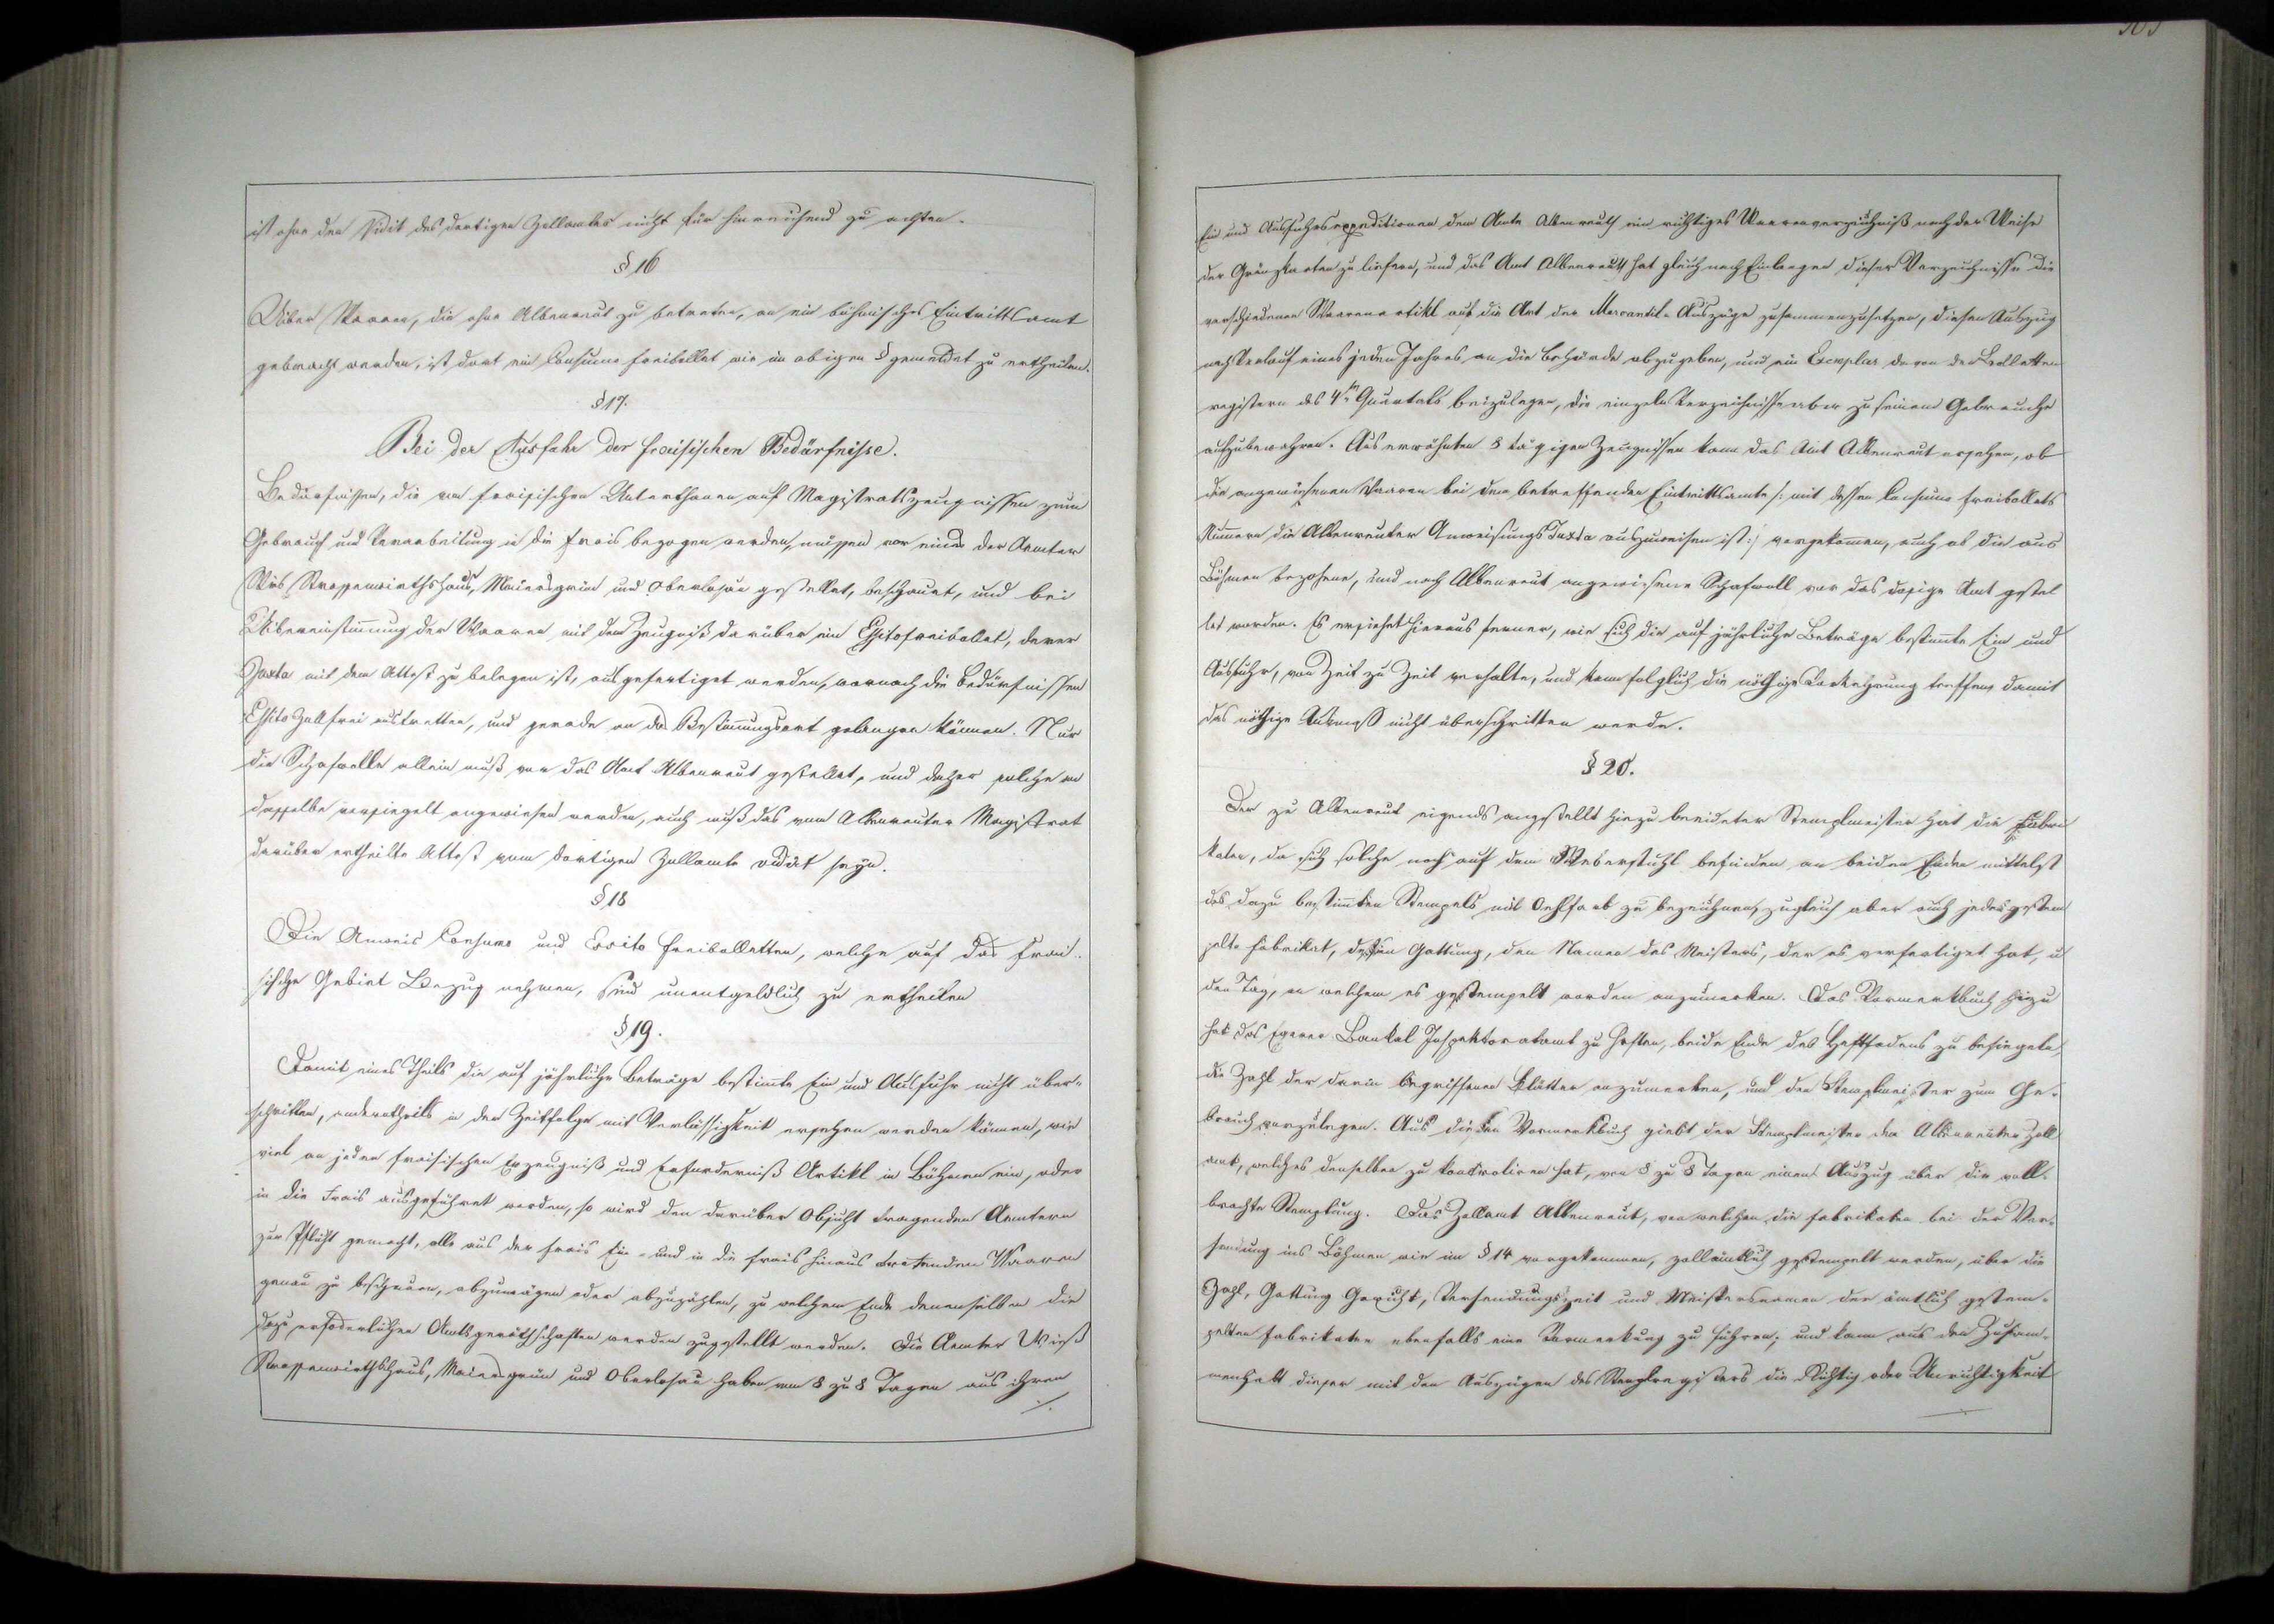 ist ohne den Vidit des dortigen Zollamtes nicht für hinreichend zu achten.
§ 16
Uiber Waaren, die ohne Albenreut zu betreten, an ein böhmisches Eintrittsamt
gebracht werden, ist dort ein Consumo freibollet wie im obigen § gemeldet zu ertheilen.
§ 17.
Bei der Ausfuhr der fraisischen Bedürfnisse.
Bedürfnissen, die von fraisischen Unterthanen auf Magistratszeugnissen zum
Gebrauch und Verarbeitung in die Frais bezogen werden, müssen vor eines der Aemter
Wies Strassenwirthshaus, Maiersgrün und Oberlosau gestellet, beschauet, und bei
Uibereinstimmung der Waaren mit dem Zeugniß darüber ein Essitofreibollet, deren
Juxta mit dem Attest zu belegen ist, ausgefertiget werden, wornach die Bedürfnissen
Essito Zollfrei austretten, und gerade an den Bestimmungsort gelangen können. Nur
die Schafwolle allein muß vor das Amt Albenreut gestellet, und daher solche an
dasselbe versiegelt angewiesen werden, auch muß das vom Albenreuter Magistrat
darüber ertheilte Attest vom dortigen Zollamte vidirt seyn.
§ 18
Die Anweis Consumo und Essito freibolletten, welche auf das frai-
sische Gebiet Bezug nehmen, sind unentgeldlich zu ertheilen
§ 19.
Damit eines Theils die auf jährliche Beträge bestimte Ein und Ausfuhr nicht über-
schritten, anderntheils in der Zeitfolge mit Verlässigkeit ersehen werden können, wie
viel an jeden fraisischen Erzeugniß und Erforderniß Artikl in Böhmen ein, oder
in die Frais ausgeführet werden, so wird den darüber Obsicht tragenden Aemtern
zur Pflicht gemacht, alle aus der frais Ein- und in die frais hinaus tretenden Waaren
genau zu beschauen, abzuwägen oder abzuzählen, zu welchem Ende denenselben die
dazu erfoderlichen Amtsgeräthschaften werden zugestellt werden. Die Aemter Wieß
Strassenwirthshaus, Maiersgrün und Oberlosau haben von 8 zu 8 Tagen aus ihren
./.
Ein und Ausfuhrsexpeditionen dem Amte Albenreuth ein richtiges Waarenverzeichniß nach der Weise
der Gränzkarten zu liefern, und das Amt Albenreuth hat gleich nach Einlangen dieser Verzeichnisse die
verschiedenen Waarenartikl auf die Art der Mercantil-Auszüge zusammenzusetzen, diesen Auszug
nach Verlauf eines jeden Jahres an die Behörde abzugeben, und ein Exemplar davon den Bolletten
registern des 4ten Quartals beizulegen, die einzeln Verzeichnisse aber zu seinem Gebrauche
aufzubewahren. Aus erwähnten 8 tägigen Zeugnissen kann das Amt Albenreut ersehen, ob
die angewiesenen Waaren bei dem betreffenden Eintrittsamte /: mit dessen Consumo freibollets
Numern die Albenreuter Anweisungs Juxta auszuweisen ist :/ vorgekommen, auch ob die aus
Böhmen bezohene, und nach Albenreut angewiesene Schafwoll vor das dasige Amt gestel
let worden. Es ersiehet hieraus ferner, wie sich die auf jährliche Beträge bestimte Ein und
Ausfuhr, von Zeit zu Zeit verhalte, und kann folglich die nöthige Vorkehrung treffen, damit
das nöthige Ausmaß nicht überschritten werde.
§ 20.
Der zu Albenreut eigends angestellt hiezu beeideter Stemplmeister hat die Fabri
katen, da sich solche noch auf dem Weberstuhl befinden an beiden Enden mittelst
des dazu bestimten Stempels mit Oehlfarb zu bezeichnen, zugleich aber auch jedes gestem
pelte Fabrikat, dessen Gattung, den Namen des Meisters, der es verfertiget hat, u
den Tag, an welchem es gestempelt worden anzumerken. Das Vormerkbuch hiezu
hat das Egerer Bankal Inspektoratamt zu heften, beide Ende des Heftfadens zu besiegeln,
die Zahl der darin begriffenen Blätter anzumerken, und den Stemplmeister zum Ge-
brauch vorzulegen. Aus diesen Vormerkbuch giebt der Stemplmeister dem Albenreuter Zoll
amt, welches denselben zu kontroliren hat, von 8 zu 8 Tagen einen Auszug über die voll-
brachte Stemplung. Das Zollamt Albenreut, von welchen die Fabrikaten bei der Ver-
sendung ins Böhmen wie im § 14 vorgekommen, zollämtlich gestempelt werden, über die
Zahl, Gattung Gewicht, Versendungszeit und Meistersnamen der ämtlich gestem-
pelten Fabrikaten ebenfalls eine Vormerkung zu führen, und kann aus den Zusam-
menhalt dieser mit den Auszügen des Stemplregisters die Richtig oder Unrichtigkeit